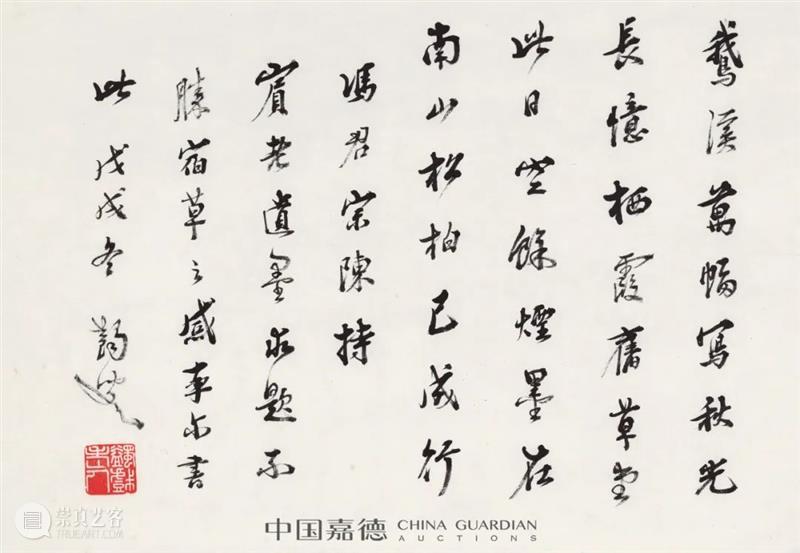 鵝溪萬幅寫秋光
長憶栖霞舊草堂
此日空餘煙墨在
南山松柏已成行
馮君宗陳持
賓老遺墨求題不
勝宿草之感率尔書
此戊戌冬蠲叟
蠲戲老人
崇真艺客
中国嘉德 CHINA GUARDIAN
AUCTIONS